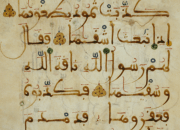 كذبت ثمود بطغو
إذ انبعث أشقيها فقال
لهم رسول الله ناقة الله
وسقيها فكذبوه
فعقروها فدمدم